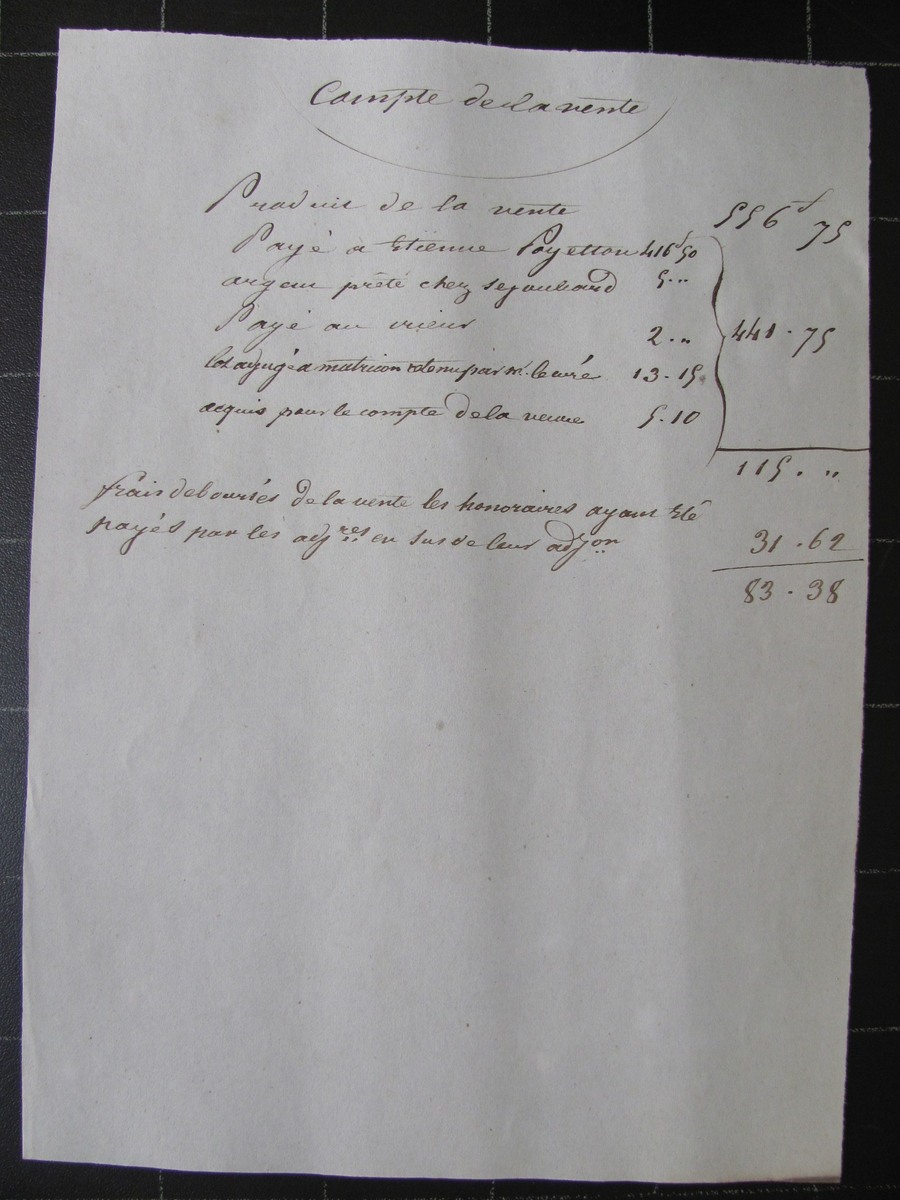 Compte de la vente
Produit de la vente 556f 75
Payé à Etienne Poyetton 416f 50
argent prêté chez 5 · ··
Payé au crieur 2 · ·· 441 · 75
lot adjugé a retenu par Mr. le curé 13 · 15
acquis pour le compte de la veuve 5 · 10
115 · ··
frais deboursés de la vente les honoraires ayant été
payés par les adjres en sus de leur adjon 31 · 62
83 · 38